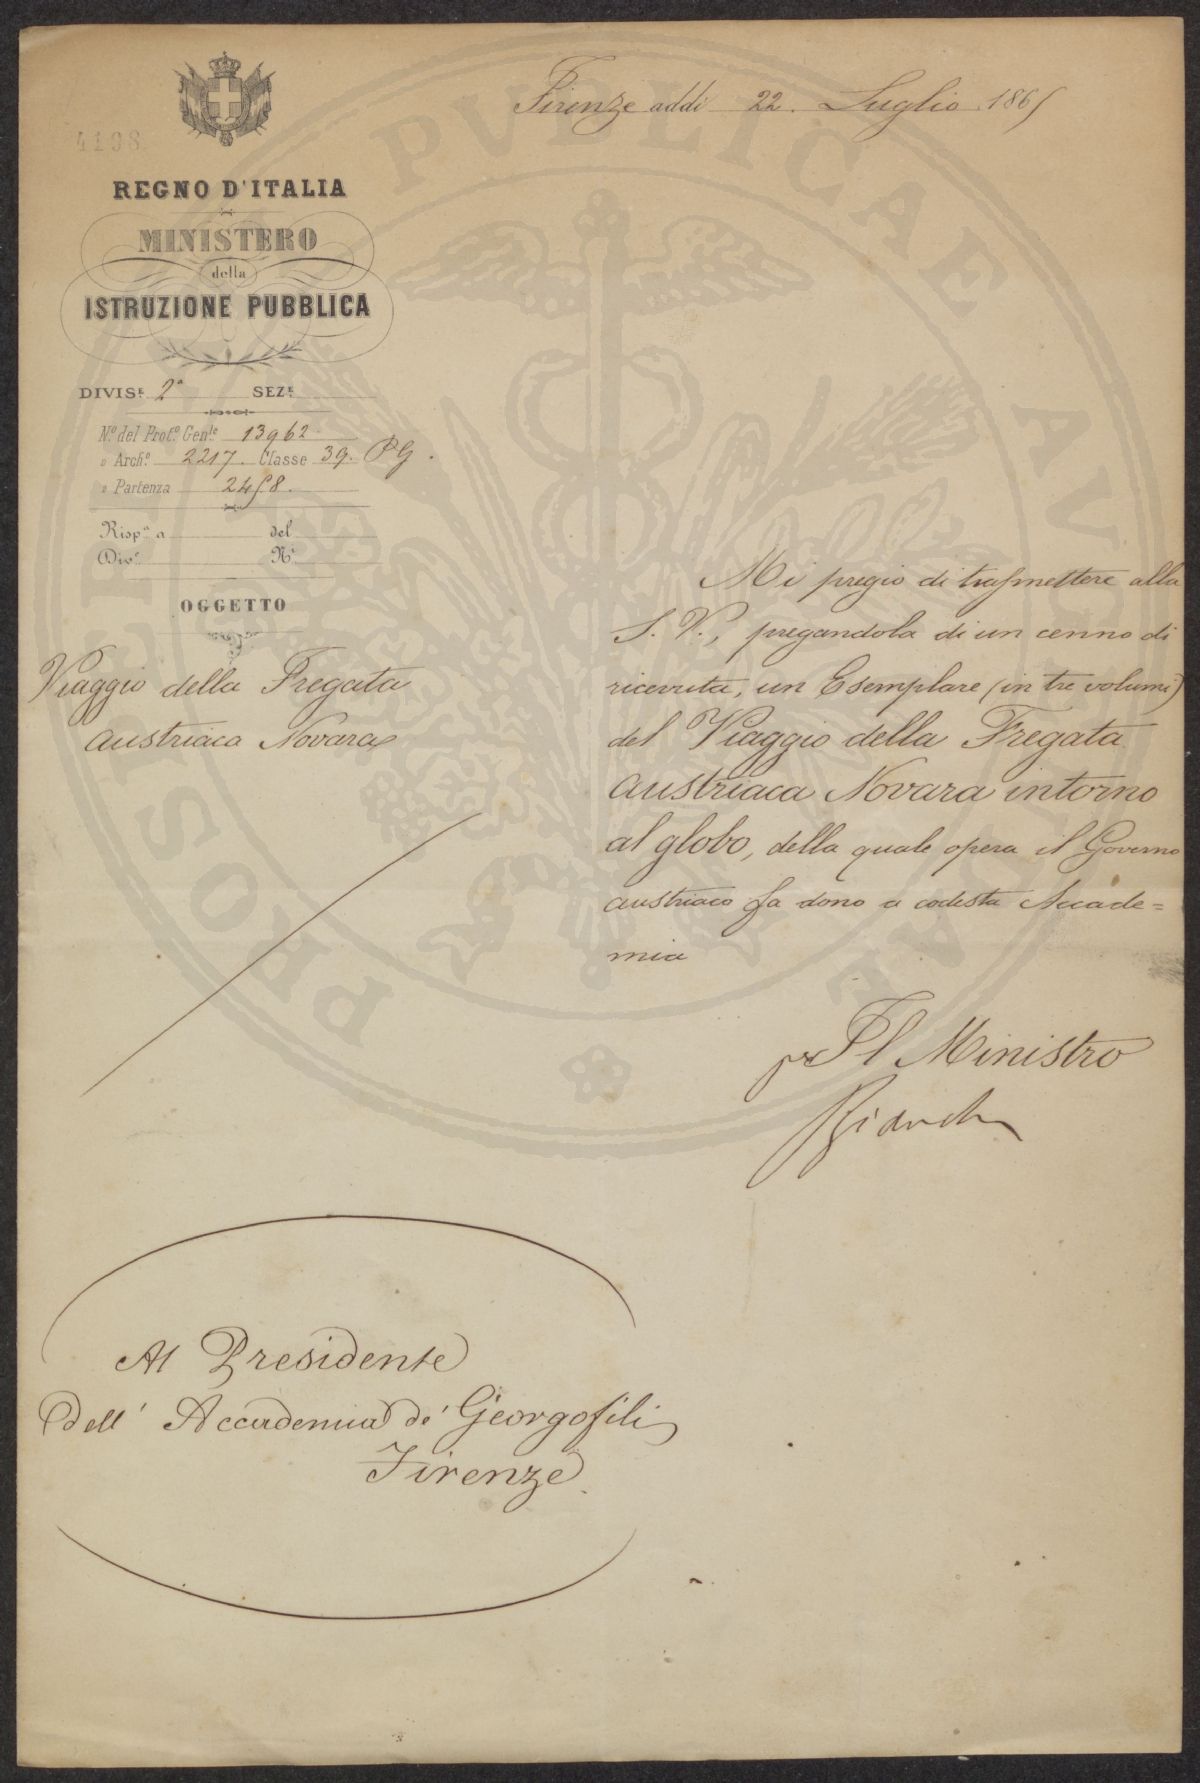 Firenze addì 22. Luglio 1865
4108
REGNO D'ITALIA
MINISTERO
della
ISTRUZIONE PUBBLICA
DIVIS.e 2a SEZ.e
N.o del Prot.o Gen.le 13962
» Arch.o 2217. Classe 39. PG.
» Partenza 2458.
Risp.a a del
Div.e N.o
OGGETTO
Viaggio della Fregata
austriaca Novara
Mi pregio di trasmettere alla
S. V., pregandola di un cenno di
ricevuta, un Esemplare (in tre volumi)
del Viaggio della Fregata
austriaca Novara intorno
al globo, della quale opera il Governo
austriaco fa dono a codesta Accade=
mia
p Il Ministro
Bianchi
Al Presidente
dell' Accademia de' Georgofili
Firenze.
PUBLICAE
PROSPERITATI
AUGENDAE